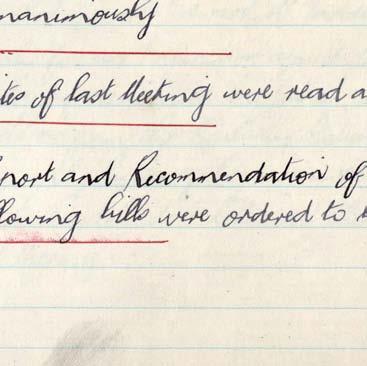 nanimously
tes of last Meeting were read a
port and Recommendation of
lowing bills were ordered to